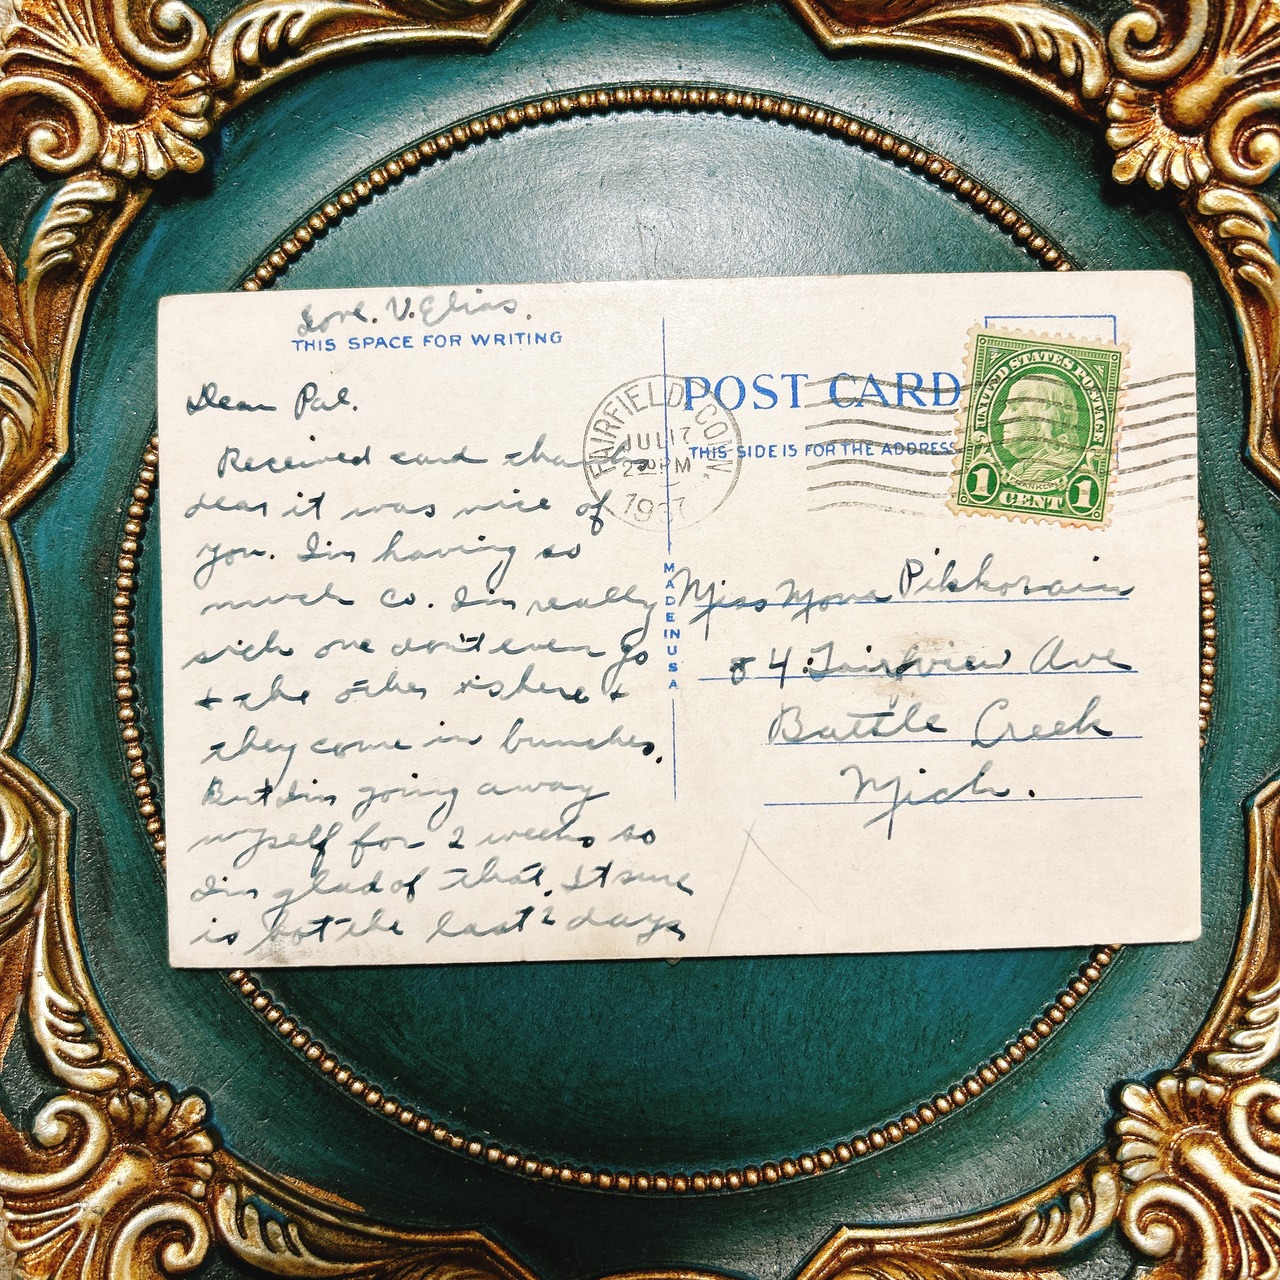 Love. V. Elias.
THIS SPACE FOR WRITING
Dear Pal.
Received card tha
dear it was nice of
you. I'm having so
much co. I'm really
sick one don't even go
+ the other is here +
they come in bunches.
But I'm going away
myself for 2 weeks so
I'm glad of that. It sure
is hot the last 2 days
FAIRFIELD, CONN.
JUL 17
2 30 PM
MADE IN USA
POST CARD
THIS SIDE IS FOR THE ADDRESS
UNITED STATES POSTAGE
FRANKLIN
1 CENT 1
Miss
84 Fairview Ave
Battle Creek
Mich.